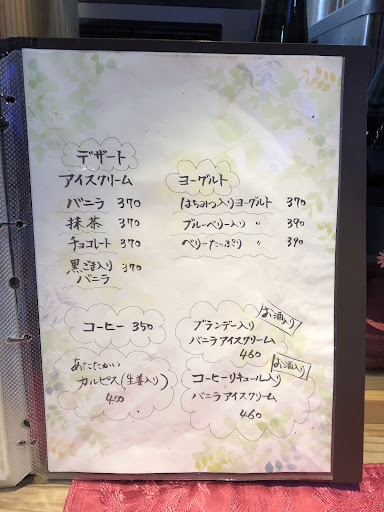 デザート
アイスクリーム
バニラ 370
抹茶 370
チョコレート 370
黒ごま入り 370
バニラ
ヨーグルト
はちみつ入りヨーグルト 370
ブルーベリー入り 〃 390
ベリーたっぷり 〃 390
コーヒー 350
あたたかい
カルピス(生姜入り)
400
お酒入り
ブランデー入り
バニラアイスクリーム
460
お酒入り
コーヒーリキュール入り
バニラアイスクリーム
460